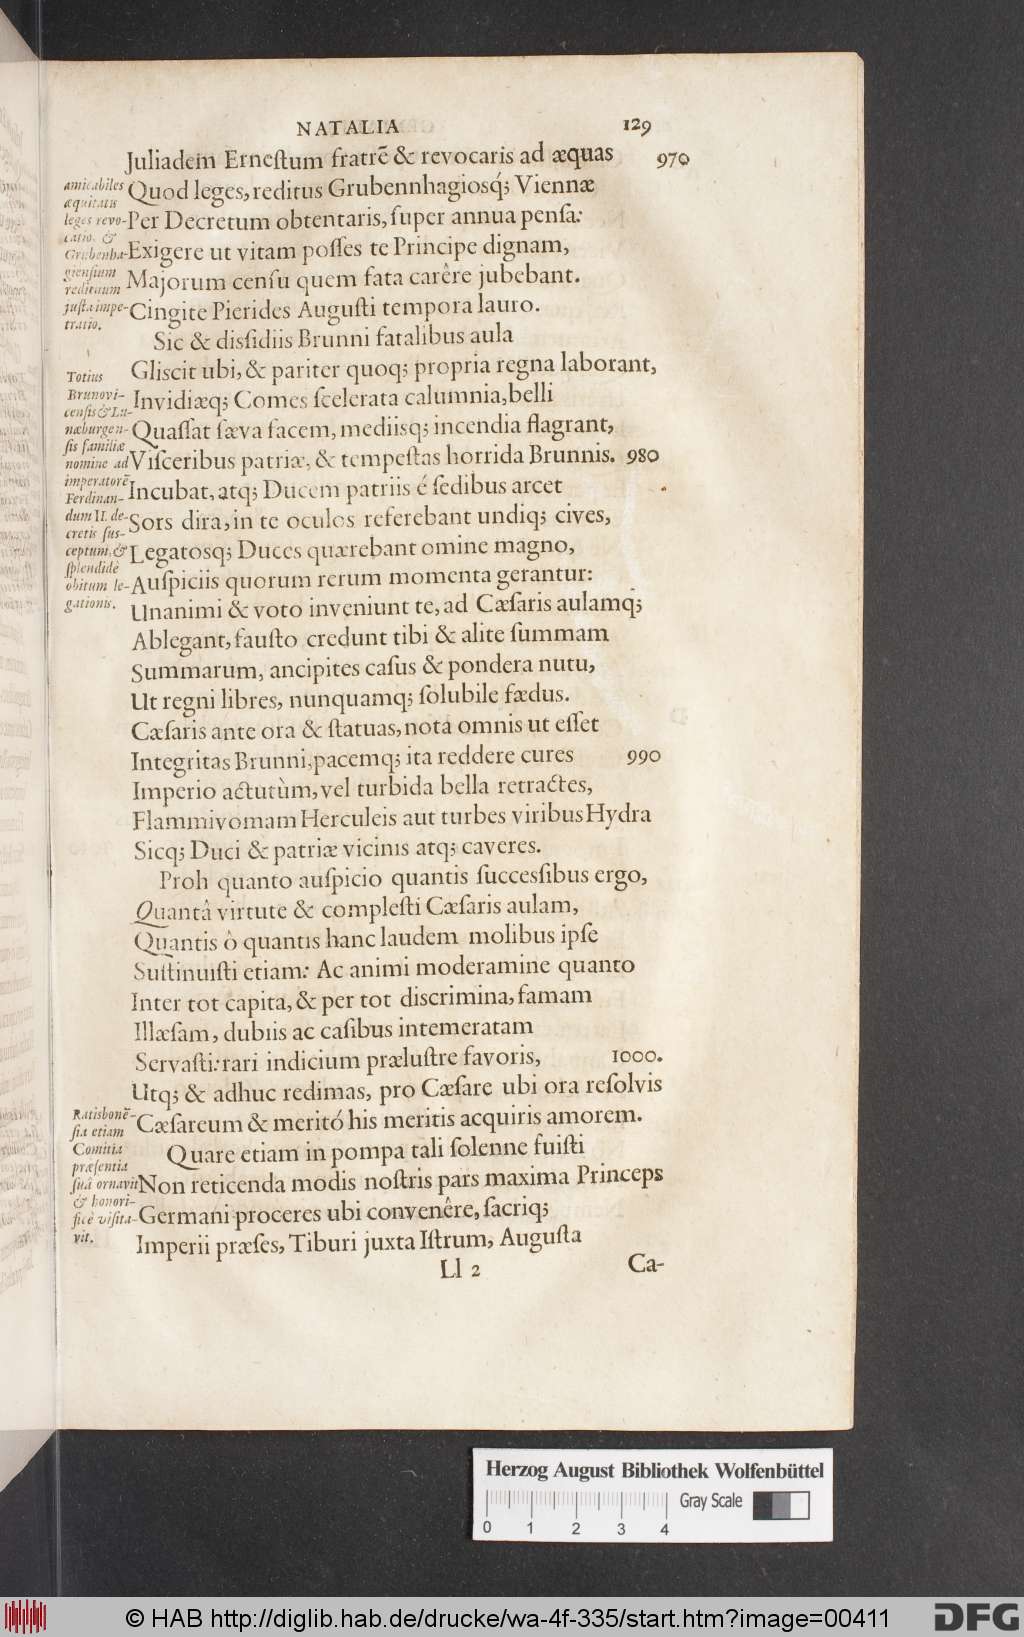 NATALIA 129
Juliadem Erneſtum fratrē & revocaris ad æquas 970
Quod leges, reditus Grubennhagiosq́; Viennæ
Per Decretum obtentaris, ſuper annua penſa:
Exigere ut vitam poſſes te Principe dignam,
Majorum cenſu quem fata carêre jubebant.
Cingite Pierides Auguſti tempora lauro.
Sic & disſidiis Brunni fatalibus aula
Gliscit ubi, & pariter quoq; propria regna laborant,
Invidiæq; Comes ſcelerata calumnia, belli
Quaſſat ſæva facem, mediisq; incendia flagrant,
Viſceribus patriæ, & tempeſtas horrida Brunnis. 980
Incubat, atq; Ducem patriis é ſedibus arcet
Sors dira, in te oculos referebant undiq; cives,
Legatosq; Duces quærebant omine magno,
Auſpiciis quorum rerum momenta gerantur:
Unanimi & voto inveniunt te, ad Cæſaris aulamq;
Ablegant, fauſto credunt tibi & alite ſummam
Summarum, ancipites caſus & pondera nutu,
Ut regni libres, nunquamq; ſolubile fædus.
Cæſaris ante ora & ſtatuas, nota omnis ut eſſet
Integritas Brunni, pacemq; ita reddere cures 990
Imperio actutùm, vel turbida bella retractes,
Flammivomam Herculeis aut turbes viribus Hydra
Sicq; Duci & patriæ vicinis atq; caveres.
Proh quanto auſpicio quantis ſuccesſibus ergo,
Quantâ virtute & compleſti Cæſaris aulam,
Quantis ò quantis hanc laudem molibus ipſe
Suſtinuiſti etiam: Ac animi moderamine quanto
Inter tot capita, & per tot discrimina, famam
Illæſam, dubiis ac caſibus intemeratam
Servaſti: rari indicium præluſtre favoris, 1000.
Utq; & adhuc redimas, pro Cæſare ubi ora reſolvis
Cæſareum & meritó his meritis acquiris amorem.
Quare etiam in pompa tali ſolenne fuiſti
Non reticenda modis noſtris pars maxima Princeps
Germani proceres ubi convenêre, ſacriq;
Imperii præſes, Tiburi juxta Iſtrum, Auguſta
Ll 2 Ca-
amicabiles
æquitatis
leges revo-
catio. &
Grubenha-
gienſium
redituum
juſta impe-
tratio.
Totius
Brunovi-
cenſis & Lu-
næburgen-
ſis familiæ
nomine ad
imperatorē
Ferdinan-
dum II. de-
cretis ſus-
ceptum, &
ſplendidè
obitum le-
gationis.
Ratisbonē-
ſia etiam
Comitia
præſentia
ſuâ ornavit
& honori-
ficè viſita-
vit.
Herzog August Bibliothek Wolfenbüttel
Gray Scale
0 1 2 3 4
© HAB http://diglib.hab.de/drucke/wa-4f-335/start.htm?image=00411
DFG